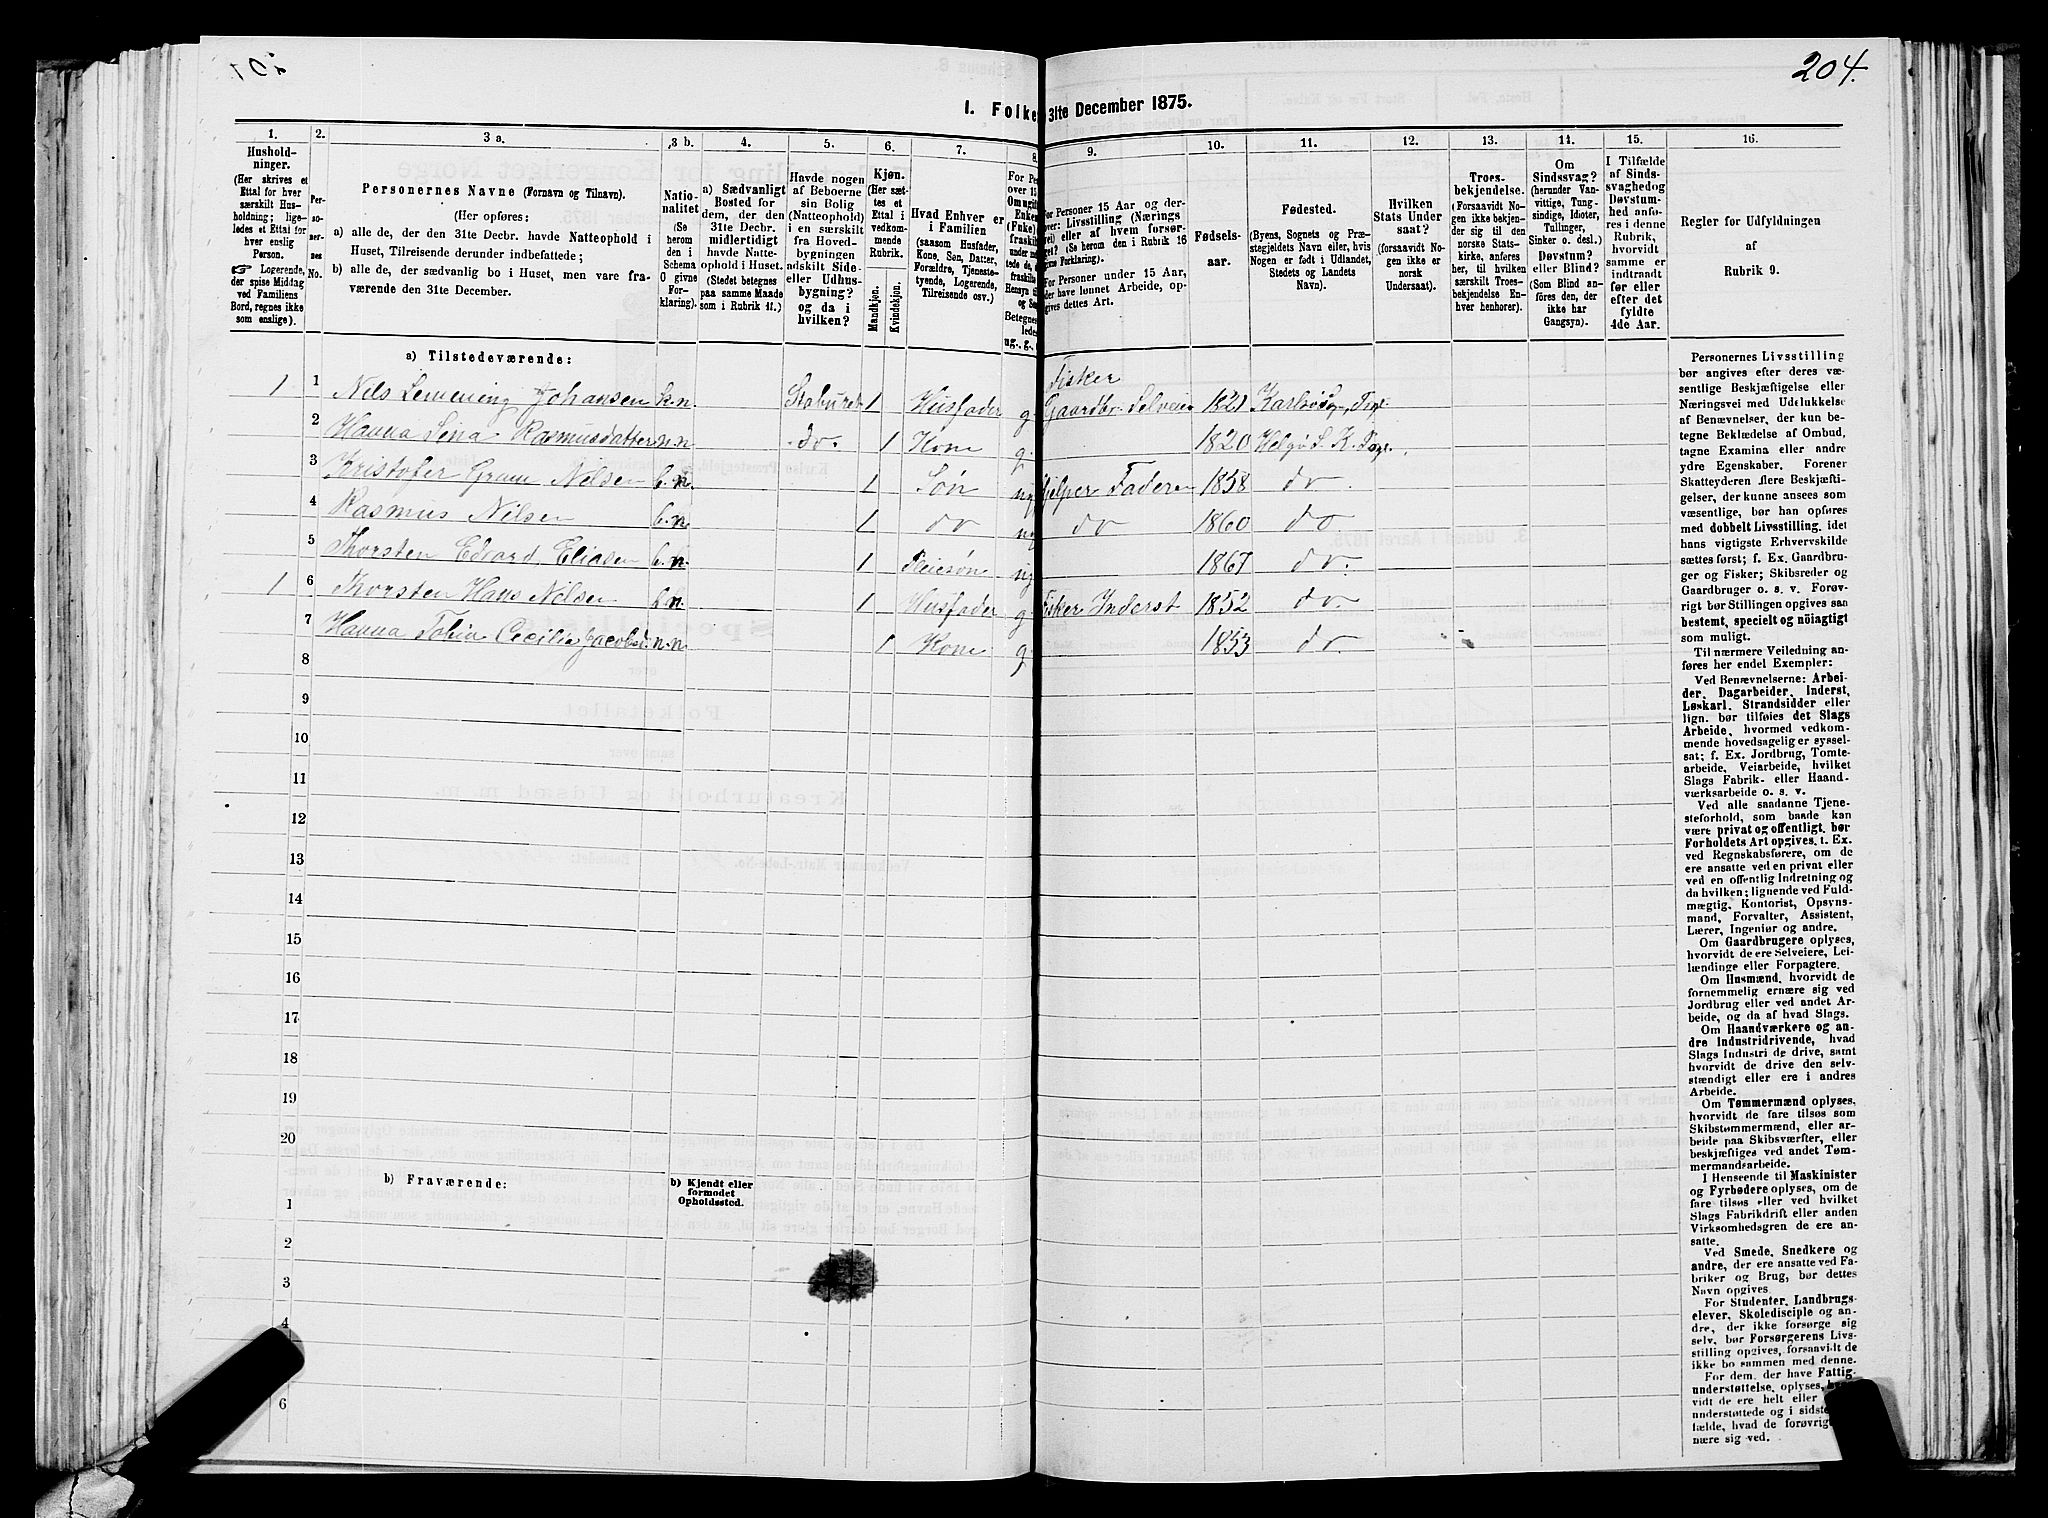 204.
I. Folke 31te December 1875.
1. 2. 3 a. 3 b. 4. 5. 6. 7. 8. 9. 10. 11. 12. 13. 14. 15. 16.
Hushold-
ninger.
(Her skrives et
Ettal for hver
særskilt Hus-
holdning; lige-
ledes et Ettal for
hver enslig
Person.
☞ Logerende,
der spise Middag
ved Familiens
Bord, regnes ikke
som enslige).
Per-
so-
ner-
nes
No.
Personernes Navne (Fornavn og Tilnavn).
(Her opføres:
a) alle de, der den 31te Decbr. havde Natteophold i
Huset, Tilreisende derunder indbefattede;
b) alle de, der sædvanlig bo i Huset, men vare fra-
værende den 31te December.
Natio-
nalitet
(Se
herom
den i
Schema
O givne
For-
klaring).
a) Sædvanligt
Bosted for
dem, der den
31te Decbr.
midlertidigt
havde Natte-
ophold i Huset.
(Stedet betegnes
paa samme Maade
som i Rubrik 11.)
Havde nogen
af Beboerne
sin Bolig
(Natteophold)
i en særskilt
fra Hoved-
bygningen
adskilt Side-
eller Udhus-
bygning?
og da i
hvilken?
Kjøn.
(Her sæt-
tes et
Ettal i
vedkom-
mende
Rubrik.
Mandkjøn.
Kvindekjøn.
Hvad Enhver er
i Familien
(saasom Husfader,
Kone, Søn, Datter,
Forældre, Tjeneste-
tyende, Logerende,
Tilreisende osv.)
For Personer 15 Aar og der-
over: Livsstilling (Nærings
vei) eller af hvem forsør-
get? (Se herom den i Rubrik 16
givne Forklaring).
For Personer under 15 Aar,
der have lønnet Arbeide, op-
gives dettes Art.
Fødsels-
aar.
Fødested.
(Byens, Sognets og Præ-
stegjeldets Navn eller, hvis
Nogen er født i Udlandet,
Stedets og Landets
Navn).
Hvilken
Stats Under
saat?
(forsaavidt No-
gen ikke er
norsk
Undersaat).
Troes-
bekjendelse.
(Forsaavidt No-
gen ikke bekjen-
der sig til den
norske Stats-
kirke, anføres
her, til hvilken
særskilt Troes-
bekjendelse En-
hver henhorer).
Om
Sindssvag?
(herunder Van-
vittige, Tung-
sindige, Idioter,
Tullinger,
Sinker o. desl.)
Døvstum?
eller Blind?
(Som Blind an-
føres den, der
ikke har
Gangsyn).
I Tilfælde
af Sinds-
svaghed og
Døvstum-
hed anfø-
res i denne
Rubrik,
hvorvidt
samme er
indtraadt
før eller
efter det
fyldte
4de Aar.
Regler for Udfyldningen
af
Rubrik 9.
a) Tilstedeværende:
1 1 Nils Lemming Johansen k.n. Staburet 1 Husfader g. Fisker Gaardbr. Selveier 1821
2 Hanna Lina Rasmusdatter n.n. do. 1 Kone g. 1820 Helgø S. K.
3 Kristofer Gram Nilsen b.n. 1 Søn ug Hjelper Faderen 1858 do.
4 Rasmus Nilsen b.n. 1 do ug do 1860 do.
5 Thorsten Edvard Eliasen b.n. 1 Pleiesøn ug 1867 do.
1 6 Thorsten Hans Nilsen b.n. 1 Husfader g. Fisker Inderst 1852 do.
7 Hanna Cecilie n.n. 1 Kone g. 1853 do.
8
9
10
11
12
13
14
15
16
17
18
19
20
b) Fraværende:
b) Kjendt eller
formodet
Opholdssted.
1
2
3
4
6
Personernes Livsstilling
bør angives efter deres væ-
sentlige Beskjæftigelse eller
Næringsvei med Udelukkelse
af Benævnelser, der kun be-
tegne Beklædelse af Ombud,
tagne Examina eller andre
ydre Egenskaber. Forener
Skatteyderen flere Beskjæfti-
gelser, der kunne ansees som
væsentlige, bør han opføres
med dobbelt Livsstilling, idet
hans vigtigste Erhvervskilde
sættes først; f. Ex. Gaardbru-
ger og Fisker; Skibsreder og
Gaardbruger o. s. v. Forøv-
rigt bør Stillingen opgives saa
bestemt, specielt og nöiagtigt
som muligt.
Til nærmere Veiledning an-
føres her endel Exempler:
Ved Benævnelserne: Arbei-
der, Dagarbeider, Inderst,
Løskarl, Strandsidder eller
lign. bør tilføies det Slags
Arbeide, hvormed vedkom-
mende hovedsagelig er syssel-
sat; f. Ex. Jordbrug, Tomte-
arbeide, Veiarbeide, hvilket
Slags Fabrik- eller Haand-
værksarbeide o. s. v.
Ved alle saadanne Tjene-
steforhold, som baade kan
være privat og offentligt, bør
Forholdets Art opgives, t. Ex.
ved Regnskabsførere, om de
ere ansatte ved en privat eller
ved en offentlig Indretning og
da hvilken; lignende ved Fuld-
mægtig, Kontorist, Opsyns-
mand, Forvalter, Assistent,
Lærer, Ingeniør og andre.
Om Gaardbrugere oplyses,
hvorvidt de ere Selveiere, Lei-
lændinge eller Forpagtere.
Om Husmænd, hvorvidt de
fornemmelig ernære sig ved
Jordbrug eller ved andet Ar-
beide, og da af hvad Slags.
Om Haandværkere og an-
dre Industridrivende, hvad
Slags Industri de drive, samt
hvorvidt de drive den selv-
stændigt eller ere i andres
Arbeide.
Om Tømmermænd oplyses,
hvorvidt de fare tilsøs som
Skibstømmermænd, eller ar-
beide paa Skibsværfter, eller
beskjæftiges ved andet Tøm-
mermandsarbeide.
I Henseende til Maskinister
og Fyrbødere oplyses, om de
fare tilsøs eller ved hvilket
Slags Fabrikdrift eller anden
Virksomhedsgren de ere an-
satte.
Ved Smede, Snedkere og
andre, der ere ansatte ved Fa-
briker og Brug, bør dettes
Navn opgives.
For Studenter, Landbrugs-
elever, Skoledisciple og an-
dre, der ikke forsørge sig
selv, bør Forsørgerens Livs-
stilling opgives, forsaavidt de
ikke bo sammen med denne.
For dem, der have Fattig-
understøttelse, oplyses,
vidt de ere helt eller
understøttede og i sidste